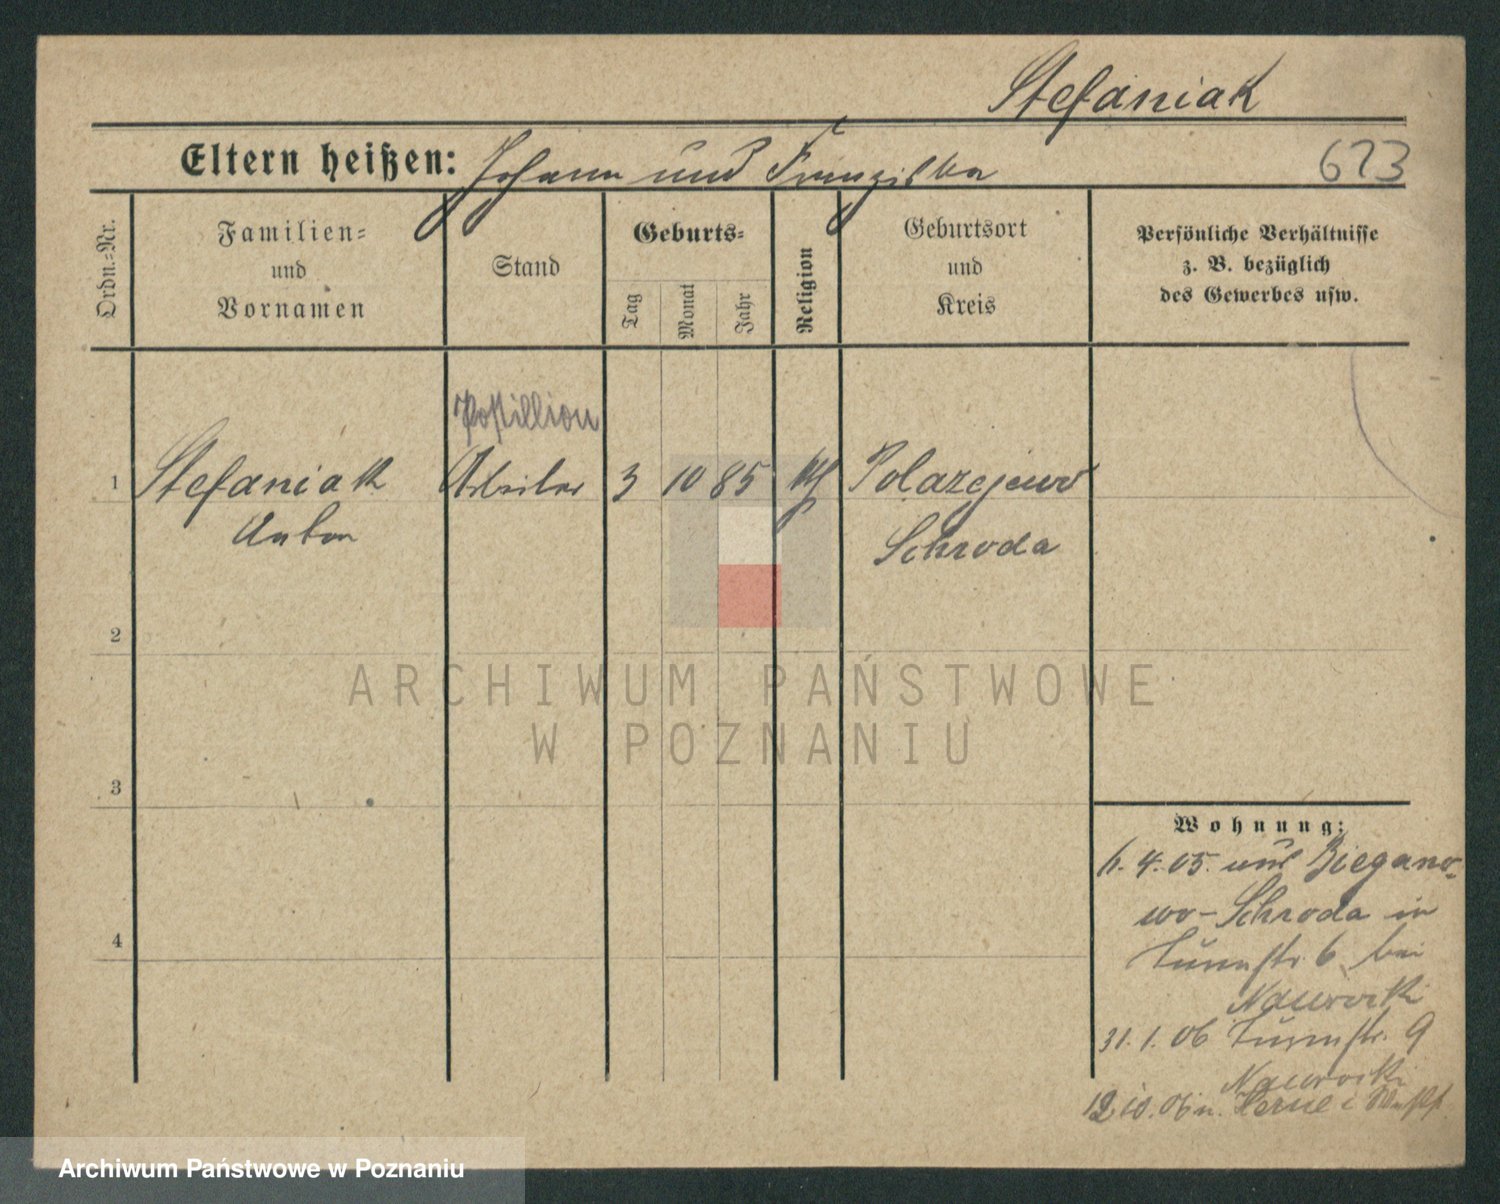 Stefaniak
Eltern heißen: Johann und Franziska
673
Ordn.-Nr.
Familien-
und
Vornamen
Stand
Geburts-
Tag
Monat
Jahr
Religion
Geburtsort
und
Kreis
Persönliche Verhältnisse
z. B. bezüglich
des Gewerbes usw.
Postillion
1 Stefaniak Arbeiter 3 10 85 kth Polazejewo
Anton Schroda
2
3
4
ARCHIWUM PAŃSTWOWE
W POZNANIU
Wohnung:
6. 4. 05. aus Biegano-
wo-Schroda in
Turmstr. 6 bei
Nawrocki
31. 1. 06 Turmstr. 9
Nawrocki
12 10. 06 n. Herne i Westf.
Archiwum Państwowe w Poznaniu